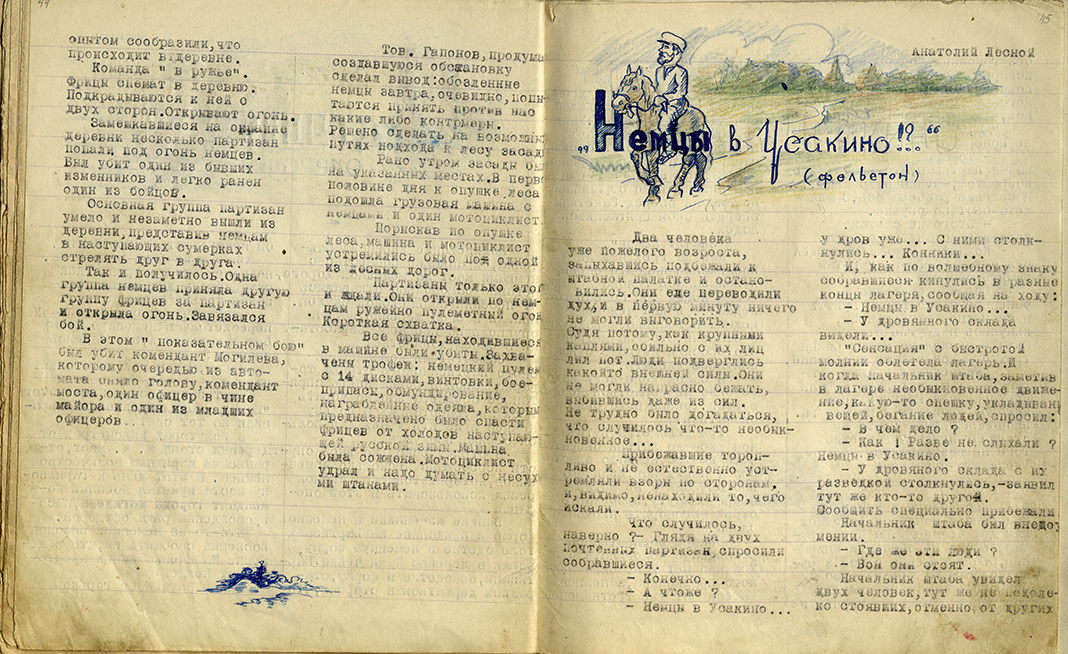 44
опытом сообразили,что
происходит вдеревне.
Команда " в ружье".
Фрицы спешат в деревню.
Подкрадываются к ней с
двух сторон.Открывают огонь.
Замешкавшиеся на окраине
деревни несколько партизан
попали под огонь немцев.
Был убит один из бывших
изменников и легко ранен
один из бойцов.
Основная группа партизан
умело и незаметно вышли из
деревни,представив немцам
в наступающих сумерках
стрелять друг в друга.
Так и получилось.Одна
группа немцев приняла другую
группу фрицев за партизан
и открыла огонь.Завязался
бой.
В этом " показательном бою"
был убит комендант Могилева,
которому очередью из авто-
мата сняло голову,комендант
моста,один офицер в чине
майора и один из младших
офицеров..
Тов. Гапонов,продума
создавшуюся обстановку
сделал вывод:обозленные
немцы завтра,очевидно,попы
таются принять против нас
какие либо контрмеры.
Решено сделать на возможных
путях подхода к лесу засады
Рано утром засады бы
на указанных местах.В перво
половине дня к опушке леса
подошла грузовая машина с
немцами и один мотоциклист.
Порыскав по опушке
леса,машина и мотоциклист
устремились было по одной
из лесных дорог.
Партизаны только этог
и ждали.Они открыли по нем-
цам ружейно пулеметный огон
Короткая схватка.
Все фрицы,находившиеся
в машине были убиты.Захва-
чены трофеи: немецкий пулем
с 14 дисками,винтовки,бое-
припасы,обмундирование,
награбленные одеяла,которым
предназначено было спасти
фрицев от холодов наступаю-
щей русской зимы.Машина
была сожжена.Мотоциклист
удрал и надо думать с несух
ми штанами.
45
Анатолий Лесной
„Немцы в Усакино!?“
(фельетон)
Два человека
уже пожелого возроста,
запыхавшись подбежали к
штабной палатке и остано-
вились.Они еле переводили
дух,и в первую минуту ничего
не могли выговорить.
Судя потому,как крупными
каплями,обильно с их лиц
лил пот.Люди подверглись
какойто внешней силы.Они
не могли напрасно бежать,
выбившись даже из сил.
Не трудно было догадаться,
что случилось что-то необык-
новенное...
Прибежавшие тороп-
ливо и не естественно уст-
ремляли взоры по сторонам,
и,видимо,ненаходили то,чего
искали.
Что случилось,
наверно ?- Глядя на двух
почтенных партизан,спросили
собравшиеся.
- Конечно...
- А чтоже ?
- Немцы в Усакино...
у дров уже... С ними столк-
нулись... Конники...
И, как по волшебному знаку
собравшиеся кинулись в разные
концы лагеря,сообщая на ходу:
- Немцы в Усакино...
- У дровянного склада
видели...
"Сенсация" с быстротой
молнии облетела лагерь.И
когда начальник штаба,заметив
в лагере необыкновенное движе-
ние,какую-то спешку,укладывани
вещей,бегание людей,спросил:
- В чем дело ?
- Как ! Разве не слыхали ?
Немцы в Усакино.
- У дровяного склада с их
разведкой столкнулись,-заявил
тут же кто-то другой.
Сообщить специально прибежали.
Начальник штаба был внедоу
мении.
- Где же эти люди ?
- Вон они стоят.
Начальник штаба увидел
двух человек,тут же не недале-
ко стоявших,отменно от других